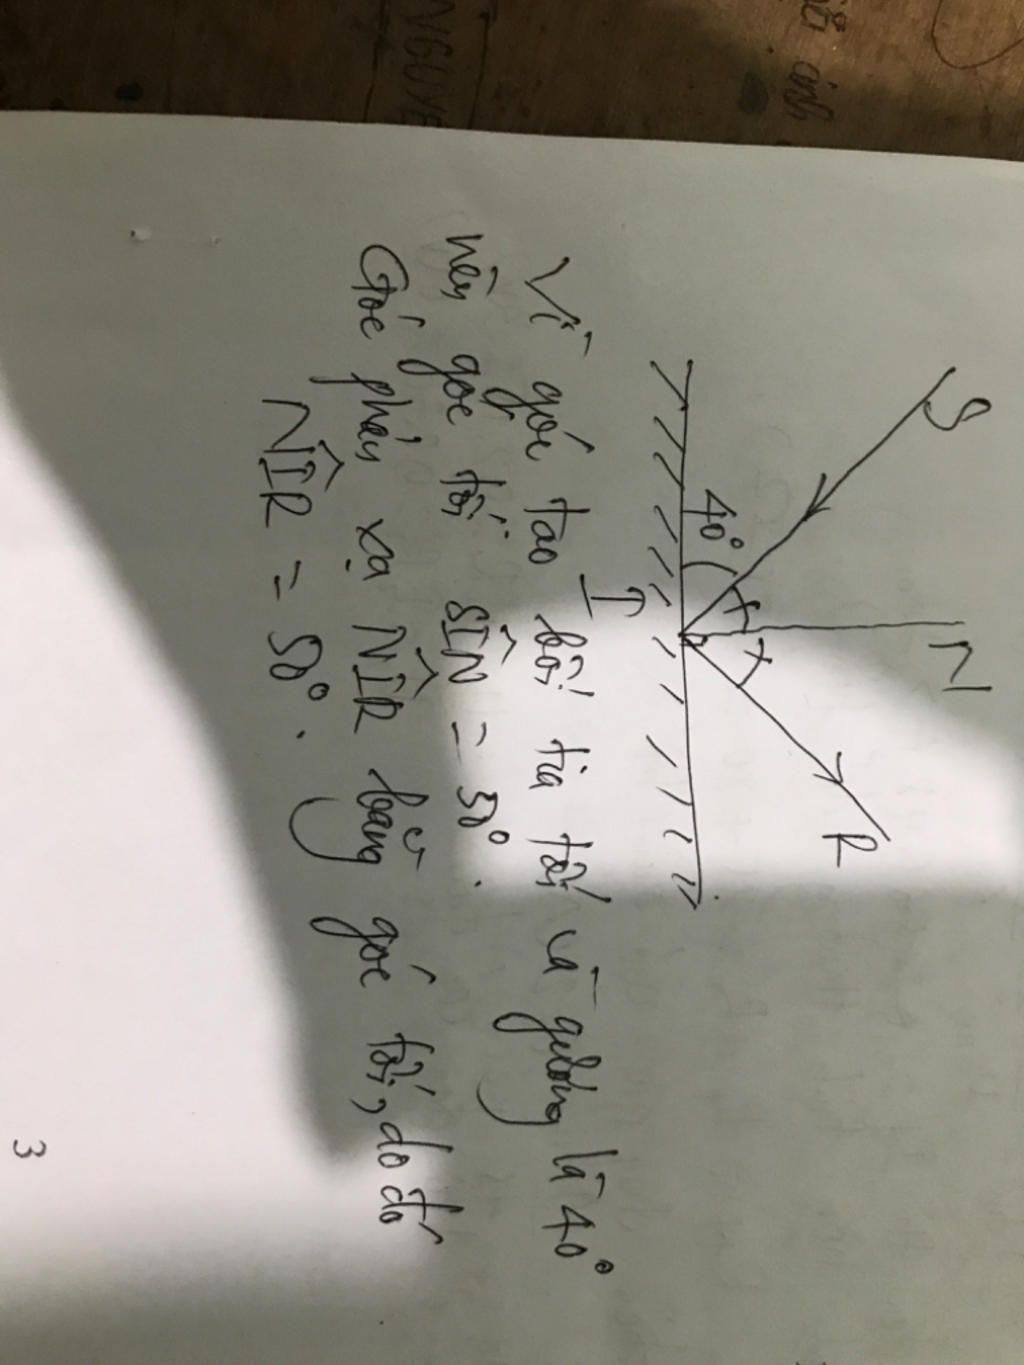 S
N
R
40°
I
Vì góc tạo bởi tia tới và gương là 40°
nên góc tới SÎN = 50°.
Góc phản xạ NÎR bằng góc tới, do đó
NÎR = 50°.
3